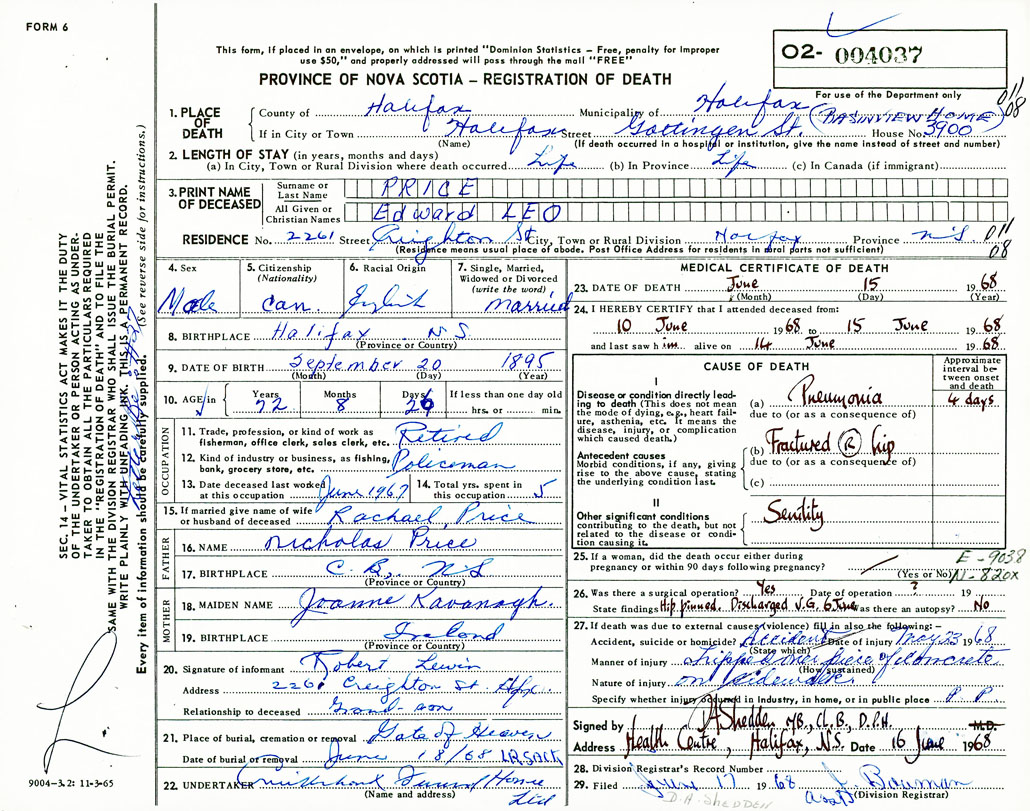 FORM 6
This form, if placed in an envelope, on which is printed "Dominion Statistics – Free, penalty for improper
use $50," and properly addressed will pass through the mail "FREE"
PROVINCE OF NOVA SCOTIA – REGISTRATION OF DEATH
O2- 004037
For use of the Department only
011
08
SEC. 14 – VITAL STATISTICS ACT MAKES IT THE DUTY
OF THE UNDERTAKER OR PERSON ACTING AS UNDER-
TAKER TO OBTAIN ALL THE PARTICULARS REQUIRED
IN THE "REGISTRATION OF DEATH" AND TO FILE THE
SAME WITH THE DIVISION REGISTRAR WHO SHALL ISSUE THE BURIAL PERMIT.
WRITE PLAINLY WITH UNFADING INK. THIS IS A PERMANENT RECORD.
Every item of information should be carefully supplied. (See reverse side for instructions.)
1. PLACE OF DEATH
County of Halifax Municipality of Halifax (BASINVIEW HOME)
If in City or Town Halifax Street Gottingen St. House No. 3900
(Name) (If death occurred in a hospital or institution, give the name instead of street and number)
2. LENGTH OF STAY (in years, months and days)
(a) In City, Town or Rural Division where death occurred Life (b) In Province Life (c) In Canada (if immigrant)
3. PRINT NAME OF DECEASED
Surname or Last Name PRICE
All Given or Christian Names Edward LEO
RESIDENCE No. 2261 Street Creighton St City, Town or Rural Division Province N.S. 011
(Residence means usual place of abode. Post Office Address for residents in rural parts not sufficient) 08
4. Sex Male
5. Citizenship (Nationality) Can.
6. Racial Origin English
7. Single, Married, Widowed or Divorced (write the word) Married
8. BIRTHPLACE Halifax N S
(Province or Country)
9. DATE OF BIRTH September 20 1895
(Month) (Day) (Year)
10. AGE in Years 72 Months 8 Days 26 If less than one day old hrs. or min.
OCCUPATION
11. Trade, profession, or kind of work as fisherman, office clerk, sales clerk, etc. Retired
12. Kind of industry or business, as fishing, bank, grocery store, etc. Policeman
13. Date deceased last worked at this occupation June 1967
14. Total yrs. spent in this occupation 5
15. If married give name of wife or husband of deceased Rachael Price
FATHER
16. NAME Nicholas Price
17. BIRTHPLACE C. B., N.S
(Province or Country)
MOTHER
18. MAIDEN NAME Joanne Kavanagh.
19. BIRTHPLACE Ireland
(Province or Country)
20. Signature of informant Robert Lewin
Address 2261 Creighton St. Hfx.
Relationship to deceased Grand-son
21. Place of burial, cremation or removal Gate of Heaven
Date of burial or removal June 18/68 LR. SACK
22. UNDERTAKER Cruikshank Funeral Home Ltd
(Name and address)
9004-3.2: 11-3-65
MEDICAL CERTIFICATE OF DEATH
23. DATE OF DEATH June 15 1968
(Month) (Day) (Year)
24. I HEREBY CERTIFY that I attended deceased from:
10 June 1968 to 15 June 1968
and last saw h im alive on 14 June 1968
CAUSE OF DEATH
Approximate interval between onset and death
I
Disease or condition directly leading to death (This does not mean the mode of dying, e.g., heart failure, asthenia, etc. It means the disease, injury, or complication which caused death.)
(a) Pneumonia 4 days
due to (or as a consequence of)
Antecedent causes
Morbid conditions, if any, giving rise to the above cause, stating the underlying condition last.
(b) Fractured (R) hip
due to (or as a consequence of)
(c)
II
Other significant conditions contributing to the death, but not related to the disease or condition causing it.
Senility
25. If a woman, did the death occur either during pregnancy or within 90 days following pregnancy?
(Yes or No)
E-9038
N-820X
26. Was there a surgical operation? Yes Date of operation ? 19
State findings Hip pinned. Discharged V.G. 6 June Was there an autopsy? No
27. If death was due to external causes (violence) fill in also the following:–
Accident, suicide or homicide? Accident Date of injury May 23 1968
(State which)
Manner of injury tripped over piece of concrete
(How sustained)
Nature of injury on sidewalk
Specify whether injury occurred in industry, in home, or in public place P. P
Signed by A Shedden MB, Ch.B, D.P.H. M.D.
Address Health Centre, Halifax, N.S. Date 16 June 1968
28. Division Registrar's Record Number
29. Filed June 17 1968 J. Bauman
(Division Registrar)
D.H. SHEDDEN